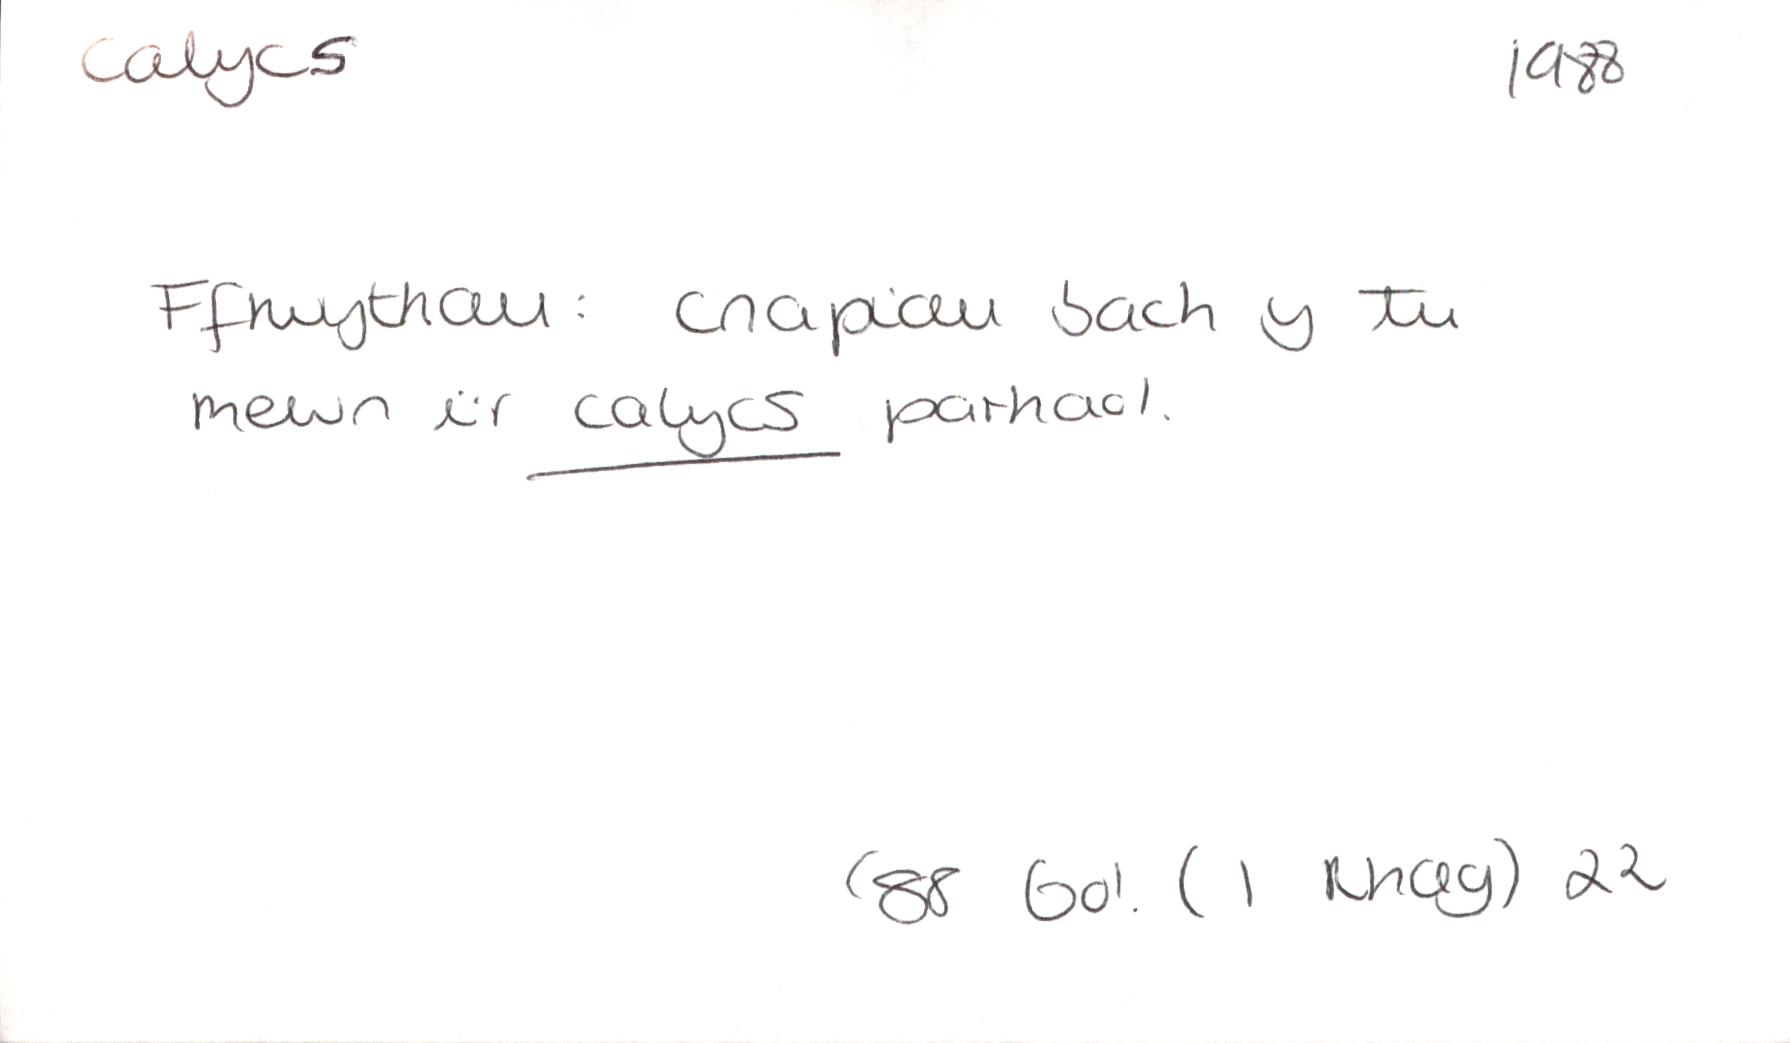 calycs 1988
Ffrwythau: cnapiau bach y tu
mewn i'r calycs parhaol.
'88 Gol. (1 Rhag) 22